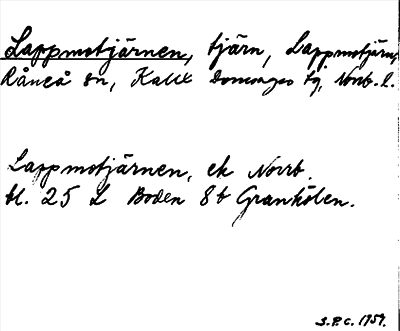 Lappmotjärnen, tjärn, Lappmotjärn,
Råneå sn, Kalix Domsagas tg, Norrb. l.
Lappmotjärnen, ek Norrb.
bl. 25 L Boden 8 b Granhölen.
S.P.C. 1959.